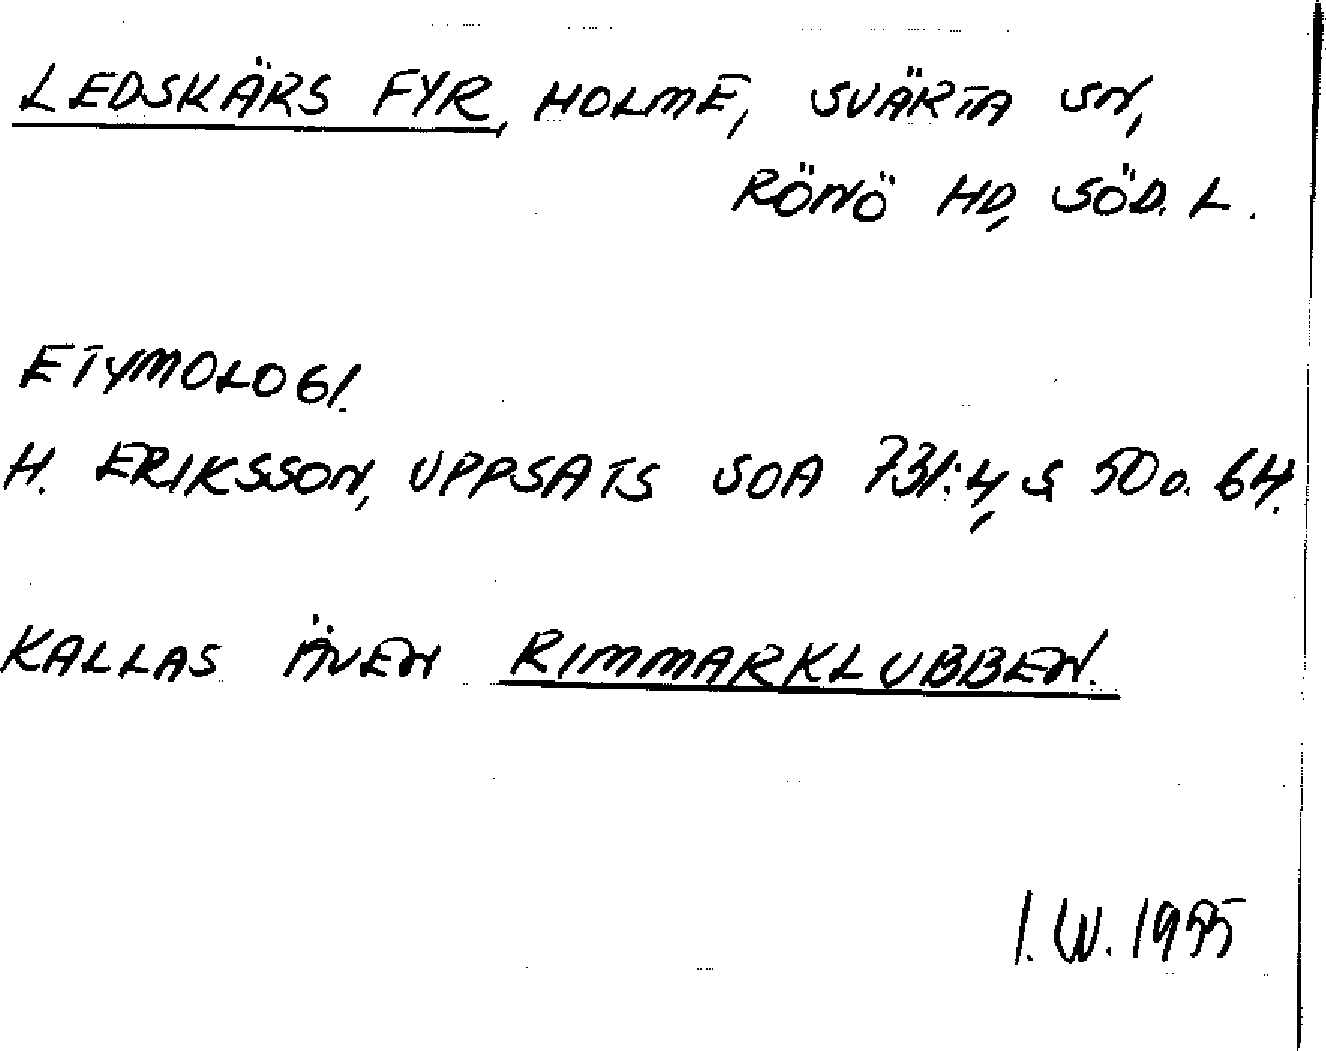 LEDSKÄRS FYR, HOLME, SVÄRTA SN,
RÖNÖ HD, SÖD. L.
ETYMOLOGI.
H. ERIKSSON, UPPSATS SOA 731:4, S. 50 o. 64.
KALLAS ÄVEN RIMMARKLUBBEN.
I. W. 1955